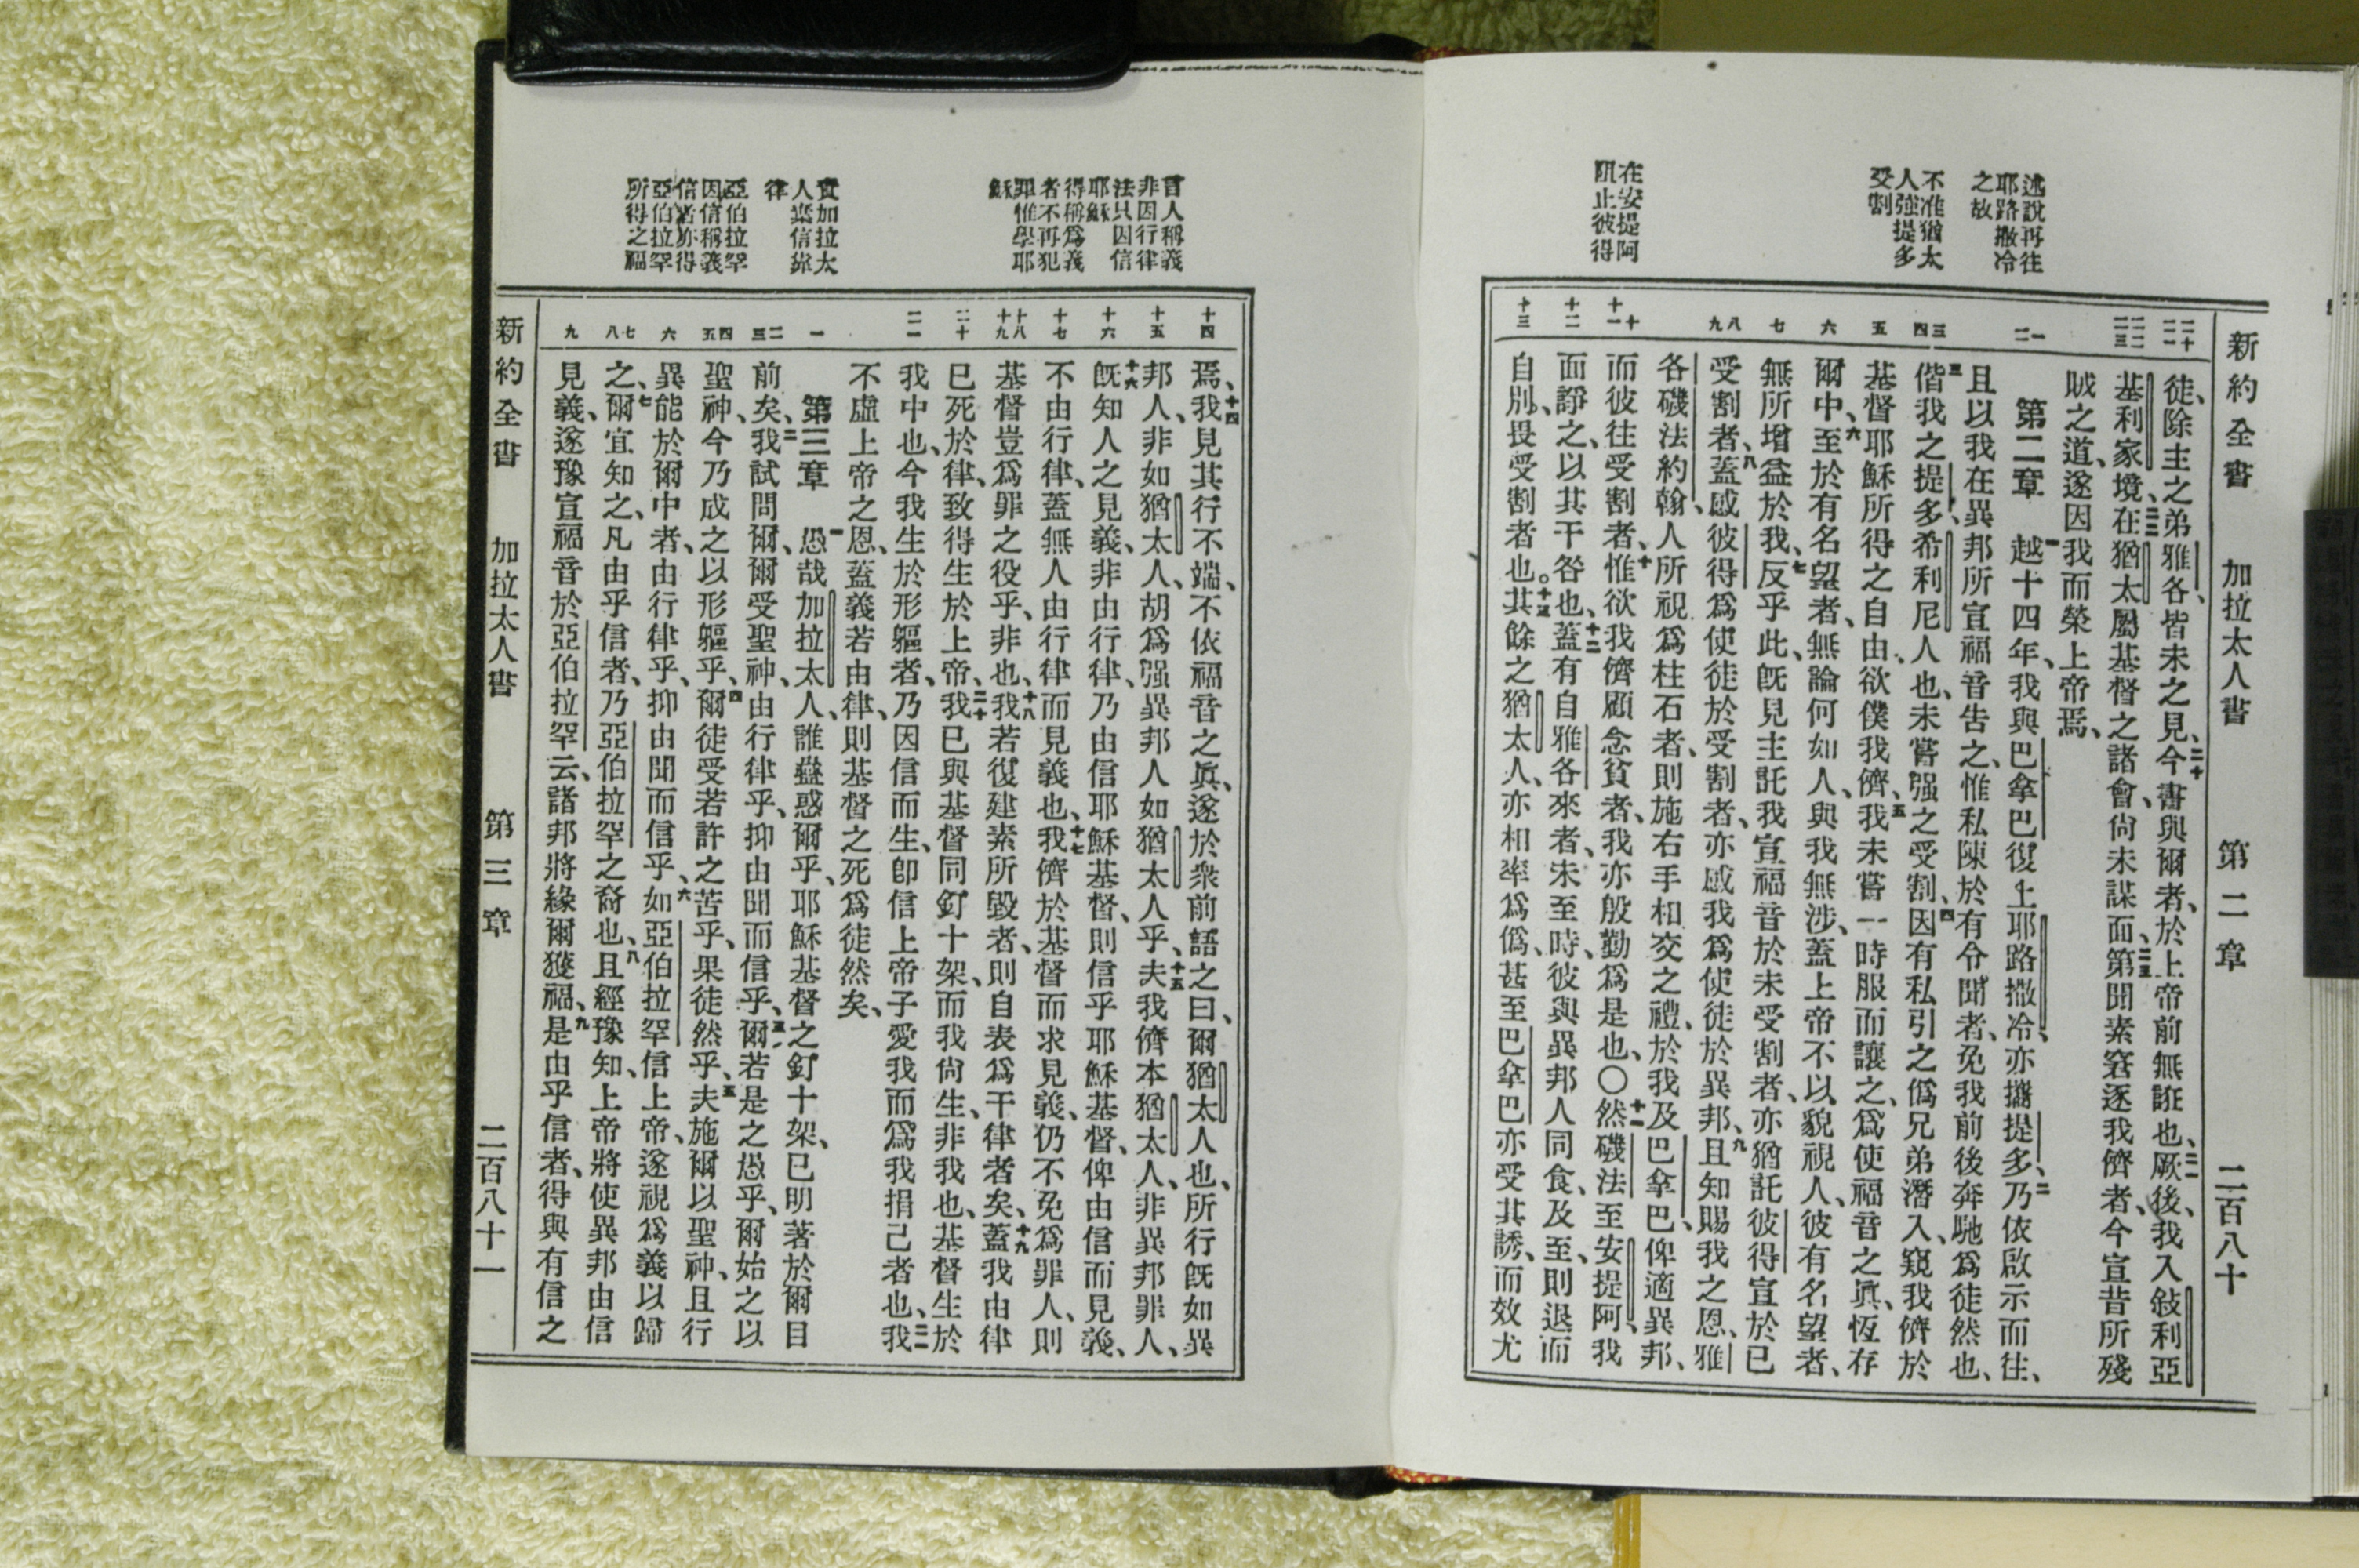 新約全書 加拉太人書 第二章 二百八十
述說再往
耶路撒冷
之故
不准猶太
人強提多
受割
在安提阿
阻止彼得
二十
二一
二二
二三
一
二
三
四
五
六
七
八
九
十
十一
十二
十三
徒、除主之弟雅各、皆未之見、二十今書與爾者、於上帝前無誑也、二一厥後、我入敍利亞
基利家境、二二在猶太屬基督之諸會、尙未謀面、二三第聞素窘逐我儕者、今宣昔所殘
賊之道、遂因我而榮上帝焉、
第二章 一越十四年、我與巴拿巴復上耶路撒冷、亦攜提多、二乃依啟示而往、
且以我在異邦所宣福音告之、惟私陳於有令聞者、免我前後奔馳爲徒然也、
三偕我之提多、希利尼人也、未嘗强之受割、四因有私引之僞兄弟潛入、窺我儕於
基督耶穌所得之自由、欲僕我儕、五我未嘗一時服而讓之、爲使福音之眞、恆存
爾中、六至於有名望者、無論何如人、與我無涉、蓋上帝不以貌視人、彼有名望者、
無所增益於我、七反乎此、旣見主託我宣福音於未受割者、亦猶託彼得宣於已
受割者、八蓋感彼得爲使徒於受割者、亦感我爲使徒於異邦、九且知賜我之恩、雅
各磯法約翰、人所視爲柱石者、則施右手相交之禮、於我及巴拿巴、俾適異邦、
而彼往受割者、十惟欲我儕顧念貧者、我亦殷勤爲是也、〇十一然磯法至安提阿、我
面諍之、以其干咎也、十二蓋有自雅各來者、未至時、彼與異邦人同食、及至、則退而
自別、畏受割者也。十三其餘之猶太人、亦相率爲僞、甚至巴拿巴亦受其誘、而效尤
新約全書 加拉太人書 第三章 二百八十一
言人稱義
非因行律
法只因信
耶穌
得稱爲義
者不再犯
罪惟學耶
穌
責加拉太
人棄信靠
律
亞伯拉罕
因信稱義
信者亦得
亞伯拉罕
所得之福
十四
十五
十六
十七
十八
十九
二十
二一
一
二
三
四
五
六
七
八
九
焉、十四我見其行不端、不依福音之眞、遂於衆前語之曰、爾猶太人也、所行旣如異
邦人、非如猶太人、胡爲强異邦人如猶太人乎、十五夫我儕本猶太人、非異邦罪人、
十六旣知人之見義、非由行律、乃由信耶穌基督、則信乎耶穌基督、俾由信而見義、
不由行律、蓋無人由行律而見義也、十七我儕於基督而求見義、仍不免爲罪人、則
基督豈爲罪之役乎、非也、十八我若復建素所毀者、則自表爲干律者矣、十九蓋我由律
已死於律、致得生於上帝、二十我已與基督同釘十架、而我尙生、非我也、基督生於
我中也、今我生於形軀者、乃因信而生、卽信上帝子愛我而爲我捐己者也、二一我
不虛上帝之恩、蓋義若由律、則基督之死爲徒然矣、
第三章 一愚哉加拉太人、誰蠱惑爾乎、耶穌基督之釘十架、已明著於爾目
前矣、二我試問爾、爾受聖神、由行律乎、抑由聞而信乎、三爾若是之愚乎、爾始之以
聖神、今乃成之以形軀乎、四爾徒受若許之苦乎、果徒然乎、五夫施爾以聖神、且行
異能於爾中者、由行律乎、抑由聞而信乎、六如亞伯拉罕信上帝、遂視爲義以歸
之、七爾宜知之、凡由乎信者、乃亞伯拉罕之裔也、八且經豫知、上帝將使異邦由信
見義、遂豫宣福音於亞伯拉罕云、諸邦將緣爾獲福、九是由乎信者、得與有信之